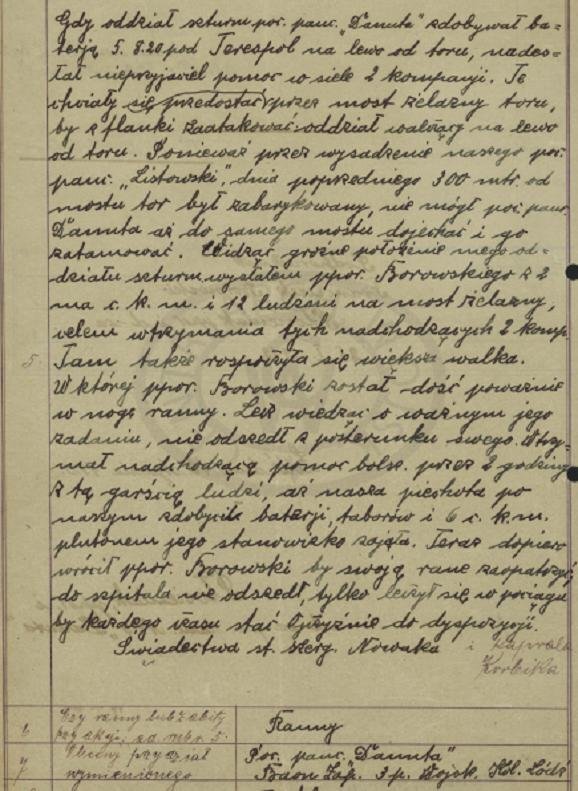 Gdy oddział szturm. poc. panc. "Danuta" zdobywał ba=
terją 5. 8. 20 pod Terespol na lewo od toru, nades=
łał nieprzyjaciel pomoc w siele 2 kompanji. Te
chciały się przedostać przez most żelazny toru,
by z flanki zaatakować oddział walczący na lewo
od toru. Ponieważ przez wysadzenie naszego poc.
panc. "Listowski", dnia poprzedniego 300 mtr. od
mostu tor był zabarykowany, nie mógł poc. panc.
Danuta aż do samego mostu dojechać i go
zatamować. Widząc groźne położenie mego od=
działu szturm. wysłałem ppor. Borowskiego z 2
ma c. k. m. i 12 ludźmi na most żelazny,
celem wtrzymania tych nadchodzących 2 komp.
5 Tam także rozpożyła się większa walka.
W której ppor. Borowski został dość poważnie
w nogę ranny. Lecz wiedząc o ważnym jego
zadaniu, nie odszedł z posterunku swego. Wtrzy=
mał nadchodzącą pomoc bolsz. przez 2 godziny
z tą garścią ludzi, aż nasza piechota po
naszym zdobyciu baterji, taborów i 6 c. k. m.
plutonem jego stanowisko zajęła. Teraz dopiero
wrócił ppor. Borowski by swoją ranę zaopatrzyć,
do szpitala nie odszedł, tylko leżył się w pociągu
by każdego czasu stać Ojczyźnie do dyspozycji.
Świadectwa st. szerg. Nowaka i kaprala
Korbika
6 Czy ranny lub zabity
przy akcji, za rubr. 5. Ranny
7 Obecny przydział
wymienionego Poc. panc. "Danuta"
Baon Zap. 3 p. Wojsk. Kol. Łódź